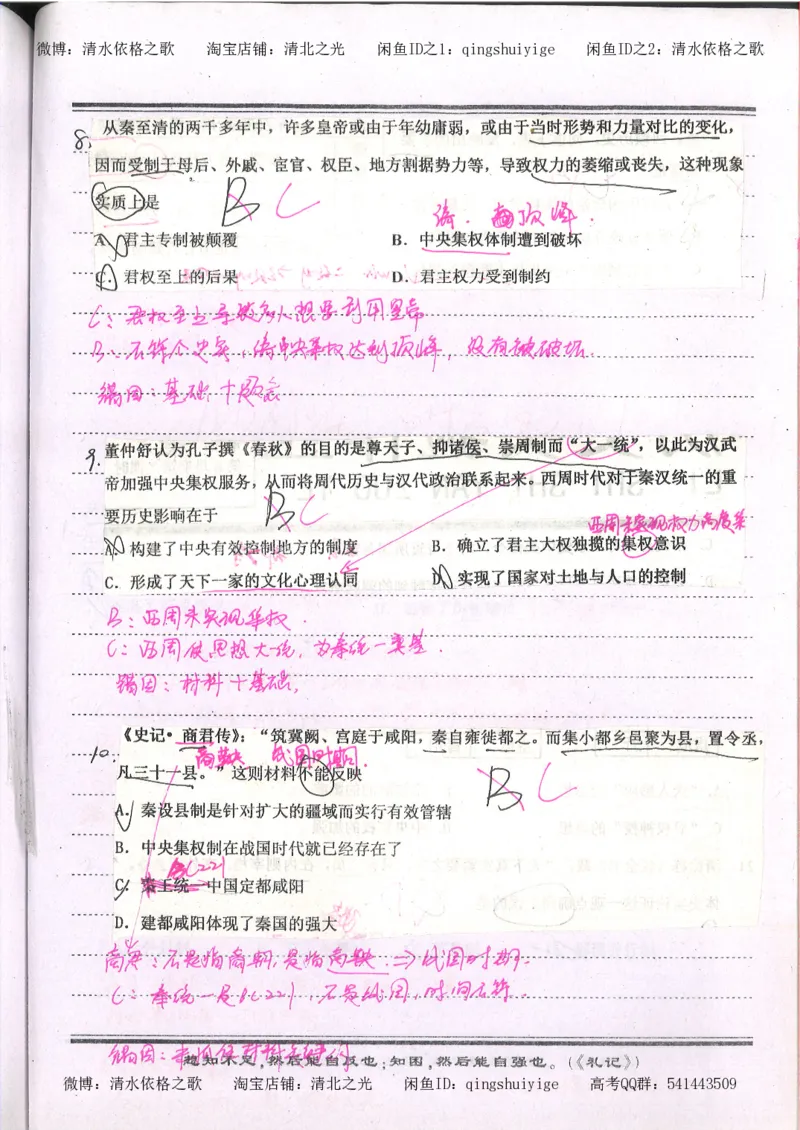 微博：清水依格之歌　淘宝店铺：清北之光　闲鱼ID之1：qingshuiyige　闲鱼ID之2：清水依格之歌
8. 从秦至清的两千多年中，许多皇帝或由于年幼庸弱，或由于当时形势和力量对比的变化，
因而受制于母后、外戚、宦官、权臣、地方割据势力等，导致权力的萎缩或丧失，这种现象
实质上是 B C
清. 顶峰.
A．君主专制被颠覆 B．中央集权体制遭到破坏
C．君权至上的后果 D．君主权力受到制约
C：君权至上导致多人想要利用皇帝
B：不符合史实，清中央集权达到顶峰，没有被破坏.
错因：基础+题意
9. 董仲舒认为孔子撰《春秋》的目的是尊天子、抑诸侯、崇周制而“大一统”，以此为汉武
帝加强中央集权服务，从而将周代历史与汉代政治联系起来。西周时代对于秦汉统一的重
要历史影响在于 B C
西周未实现权力高度集
A．构建了中央有效控制地方的制度 B．确立了君主大权独揽的集权意识
C．形成了天下一家的文化心理认同 D．实现了国家对土地与人口的控制
B：西周未实现集权.
C：西周使思想大统，为秦统一奠基.
错因：材料+基础，
10. 《史记·商君传》：“筑冀阙、宫庭于咸阳，秦自雍徙都之。而集小都乡邑聚为县，置令丞，
商鞅 战国时期.
凡三十一县。”这则材料不能反映 B C
A．秦设县制是针对扩大的疆域而实行有效管辖
B．中央集权制在战国时代就已经存在了
BC221
C．秦王统一中国定都咸阳
D．建都咸阳体现了秦国的强大
商君：不是指商朝，是指商鞅 ⇒ 战国时期.
C：秦统一是BC221，不是战国，时间不符.
错因：
知不足，然后能自反也；知困，然后能自强也。（《礼记》）
微博：清水依格之歌　淘宝店铺：清北之光　闲鱼ID：qingshuiyige　高考QQ群：541443509